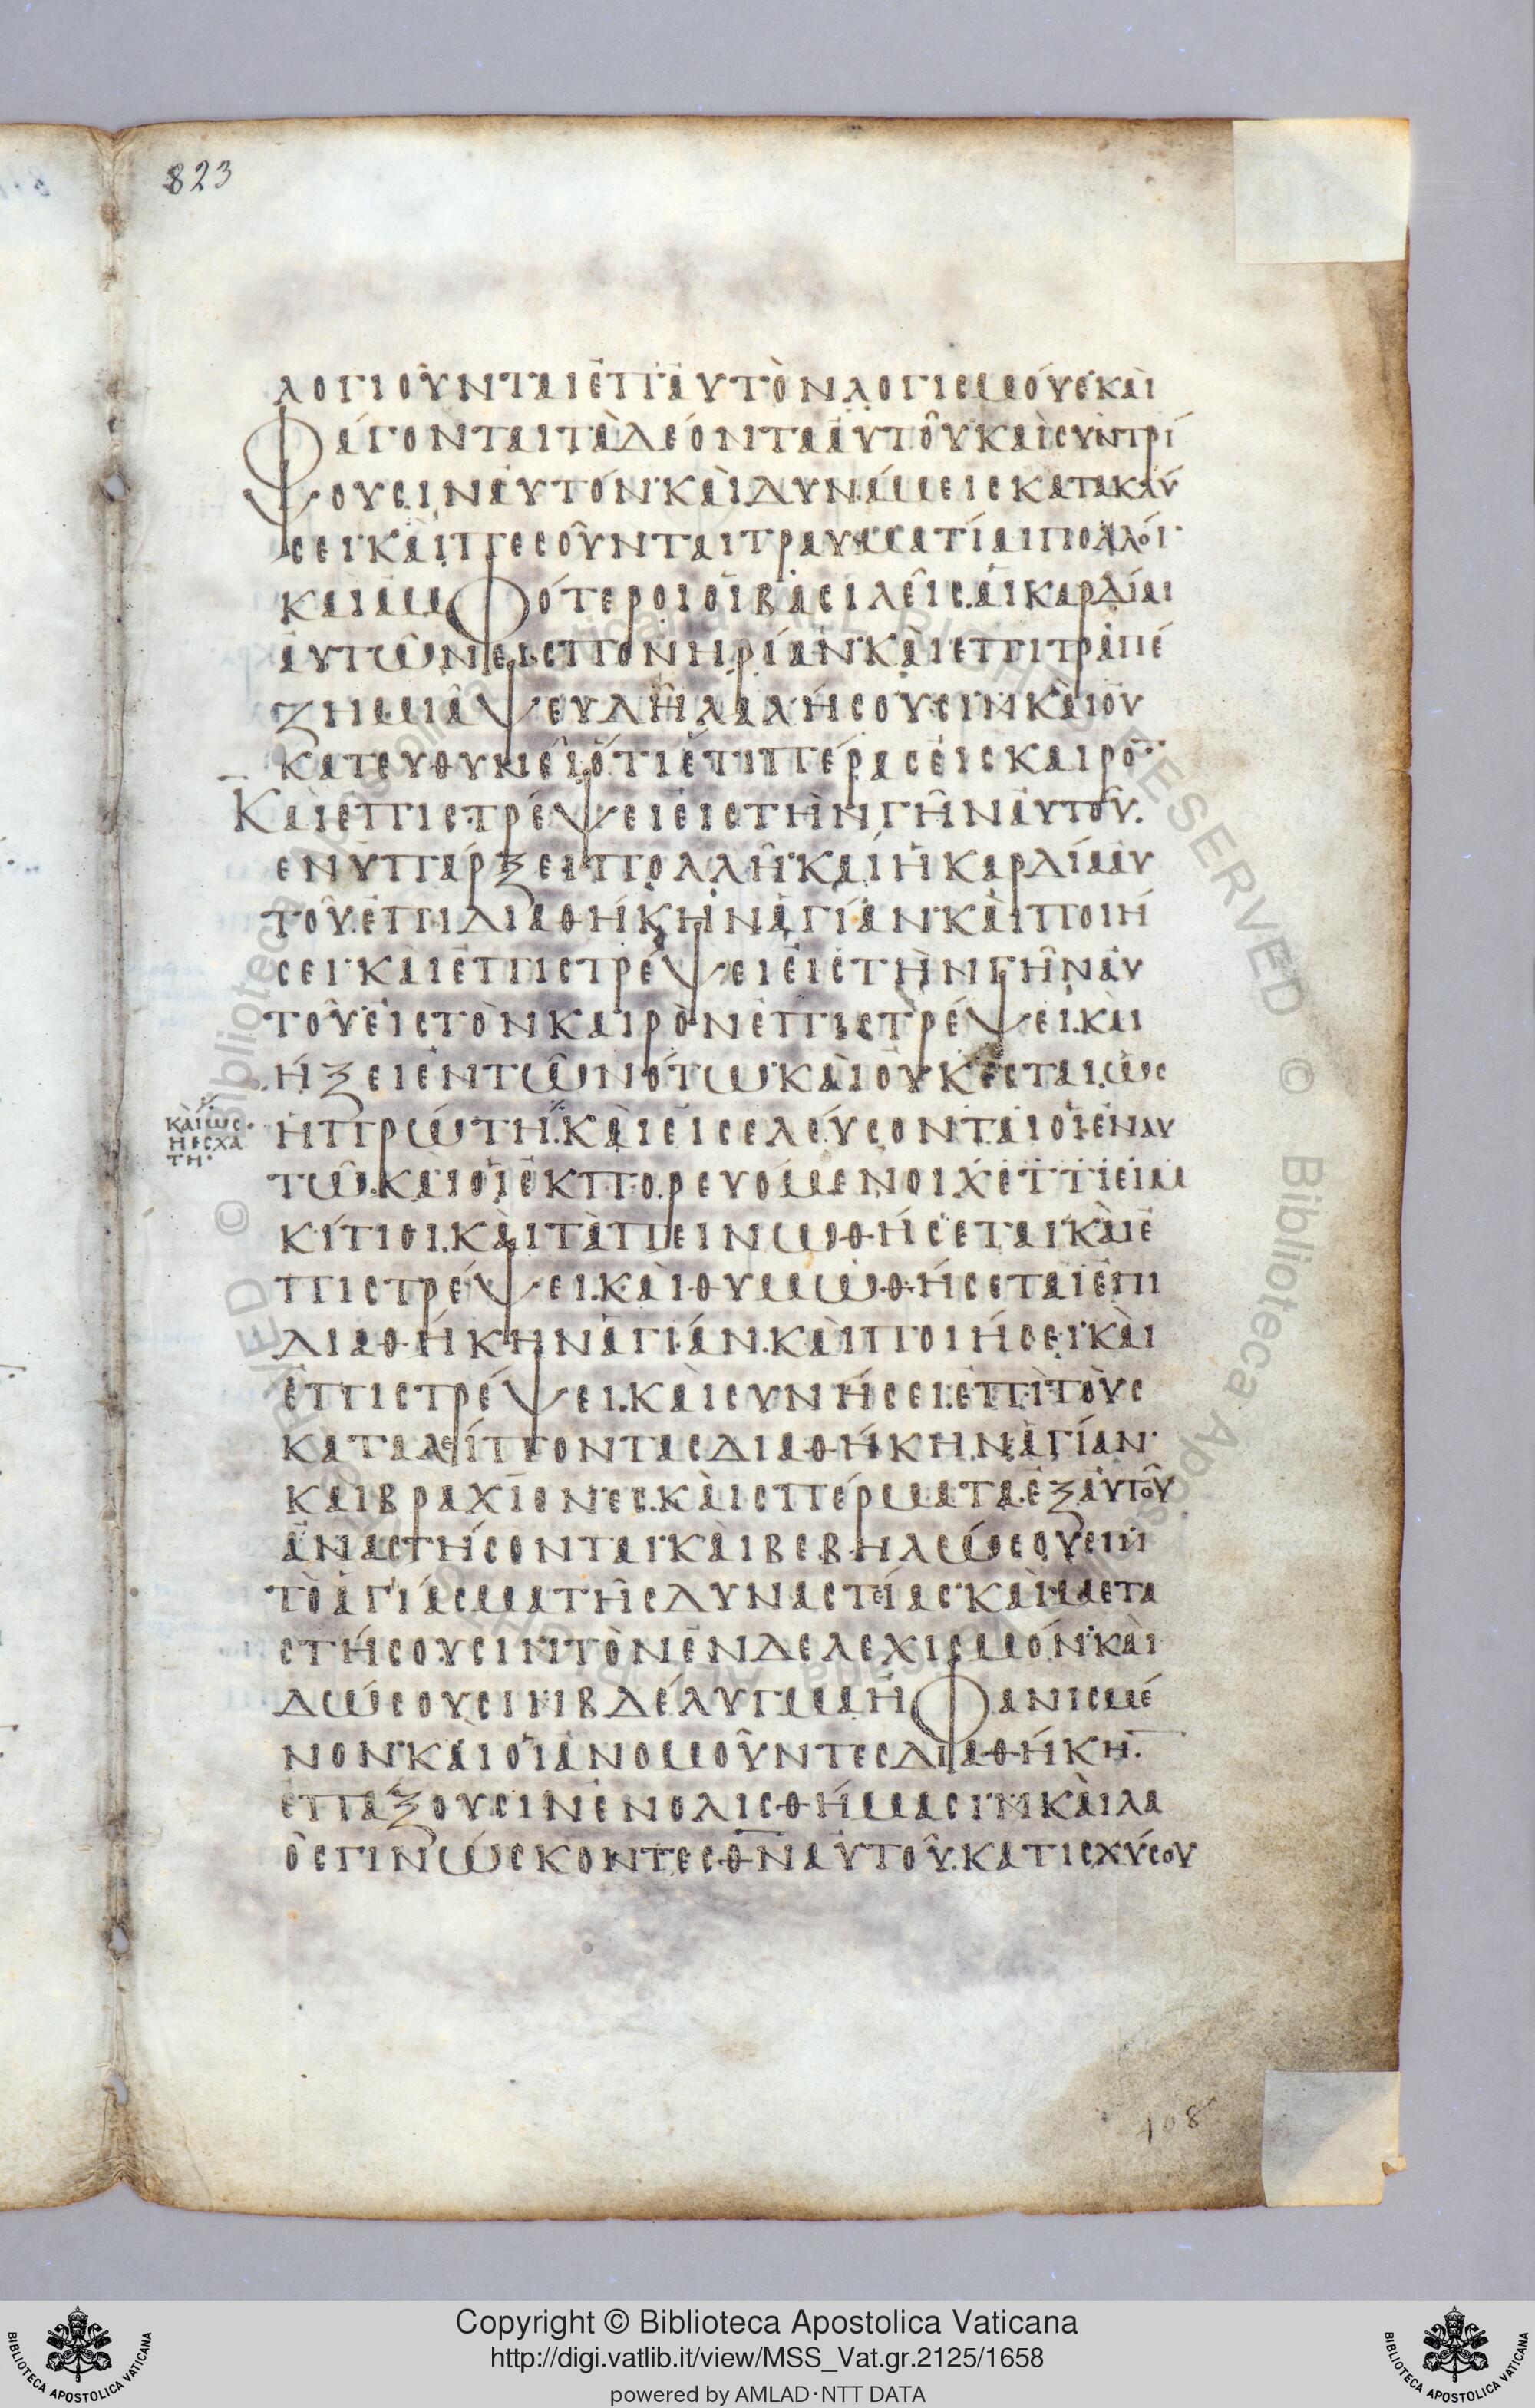 823
λογιοῦνται ἐπ' αὐτὸν λογισμούς· καὶ
Φάγονται τὰ δέοντα αὐτοῦ καὶ συντρί
ψουσιν αὐτόν· καὶ δυνάμεις κατακλύ
σει· καὶ πεσοῦνται τραυματίαι πολλοί·
καὶ ἀμφότεροι οἱ βασιλεῖς. αἱ καρδίαι
αὐτῶν εἰς πονηρίαν· καὶ ἐπὶ τραπέ
ζη μιᾶ ψευδῆ λαλήσουσιν· καὶ οὐ
κατευθυνεῖ ὅτι ἔτι πέρας εἰς καιρό̅·
Καὶ ἐπιστρέψει εἰς τὴν γῆν αὐτοῦ.
ἐν ὑπάρξει πολλῆ· καὶ ἡ καρδία αὐ
τοῦ. ἐπὶ διαθήκην ἁγίαν· καὶ ποιή
σει· καὶ ἐπιστρέψει εἰς τὴν γῆν αὐ
τοῦ· εἰς τὸν καιρὸν ἐπιστρέψει. καὶ
ἥξει ἐν τῶ νότω· καὶ οὐκ ἔσται. ὡς
ἡ πρώτη. καὶ εἰσελεύσονται οἱ ἐν αυ
καὶ ὡς
ἡ ἐσχά
τη·
τῶ. καὶ οἱ ἐκπορευόμενοι χέττιειμ
κίτιοι. καὶ ταπεινωθήσεται· καὶ ἐ
πιστρέψει. καὶ θυμωθήσεται ἐπὶ
διαθήκην ἁγίαν. καὶ ποιήσει· καὶ
ἐπιστρέψει. καὶ συνήσει. ἐπὶ τοὺς
καταλείποντας διαθήκην ἁγίαν·
καὶ βραχίονες. καὶ σπέρματα. ἐξ αὐτοῦ
ἀναστήσονται· καὶ βεβηλώσουσιν
τὸ ἁγίασμα τῆς δυναστείας· καὶ μετα
στήσουσιν τὸν ἐνδελεχισμόν· καὶ
δώσουσιν βδέλυγμα ἠφανισμέ
νον· καὶ οἱ ἀνομοῦντες διαθήκη̅.
ἐπάξουσιν ἐν ὀλισθήμασιν· καὶ λα
ὸς γινώσκοντες θ̅ν̅ αὐτοῦ. κατισχύσου
108
Copyright © Biblioteca Apostolica Vaticana
http://digi.vatlib.it/view/MSS_Vat.gr.2125/1658
powered by AMLAD·NTT DATA
BIBLIOTECA APOSTOLICA VATICANA
BIBLIOTECA APOSTOLICA VATICANA